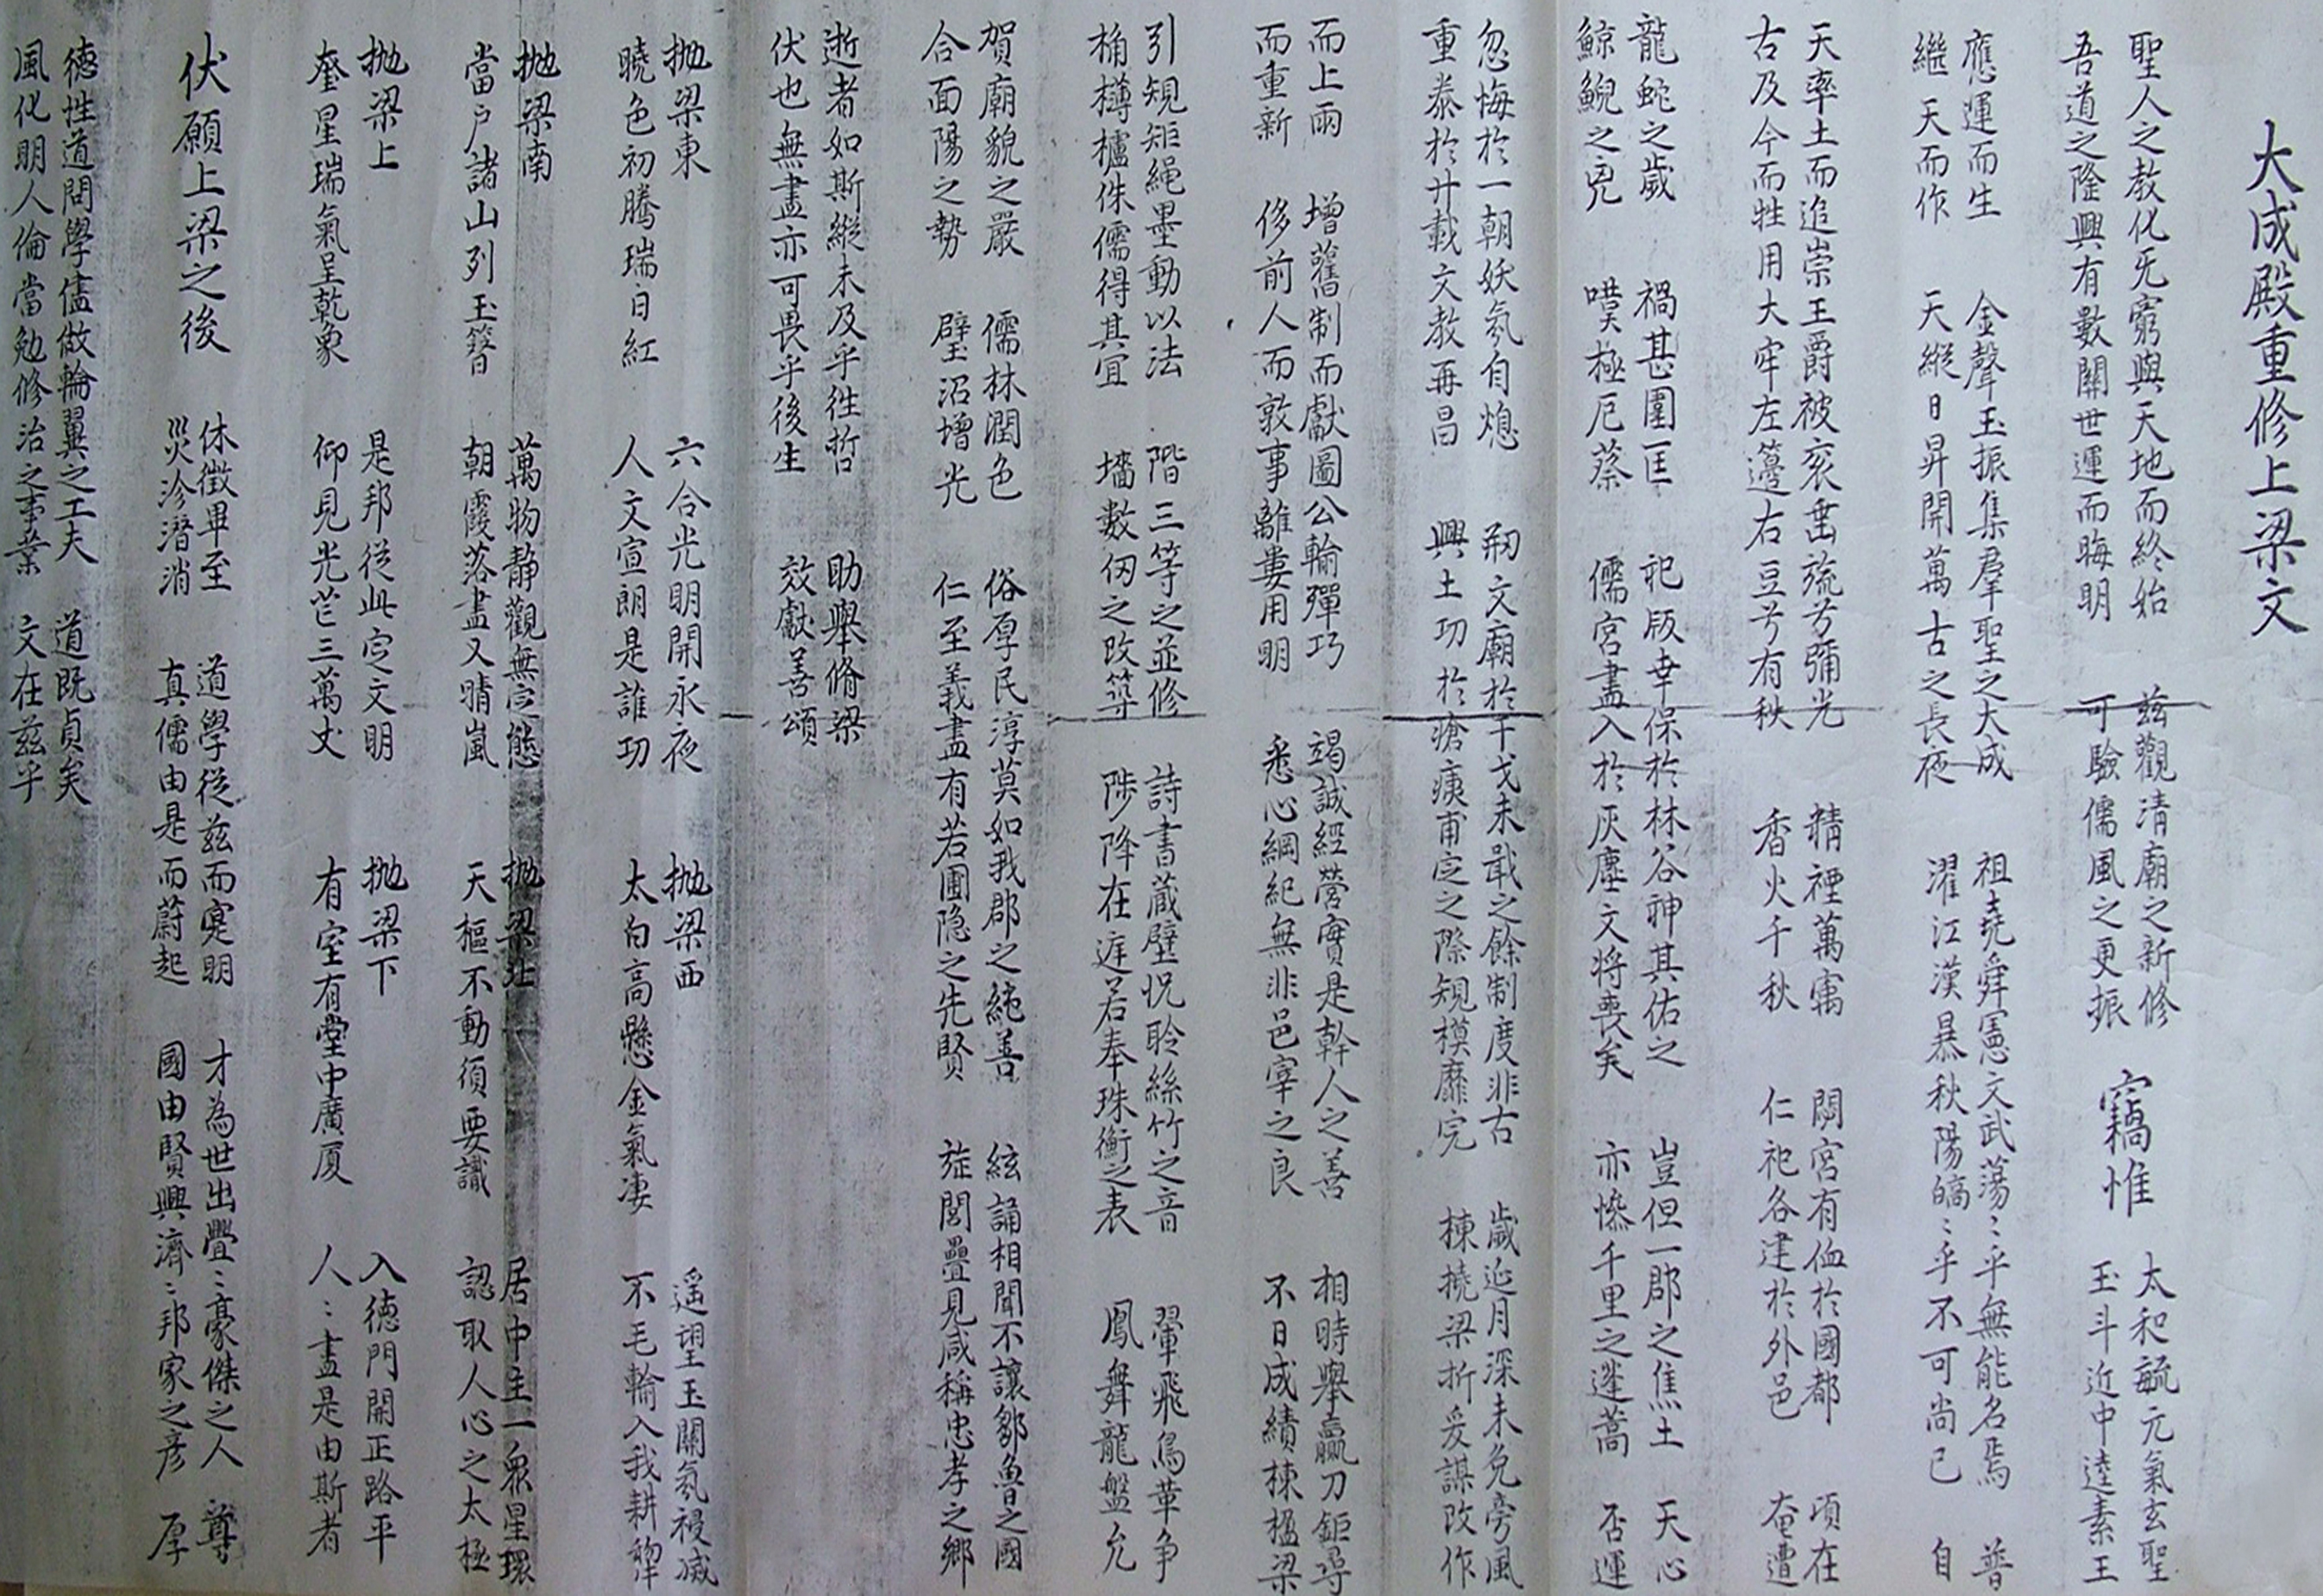 大成殿重修上梁文
聖人之教化旡窮與天地而終始 茲觀清廟之新修 竊惟 太和毓元氣玄聖
吾道之隆興有數關世運而晦明 可驗儒風之更振 玉斗近中逵素王
應運而生 金聲玉振集羣聖之大成 祖堯舜憲文武蕩〻乎無能名焉 普
繼天而作 天縱日昇開萬古之長夜 濯江漢暴秋陽皜〻乎不可尚已 自
天率土而追崇王爵被衮垂旒兮彌光 精禋萬寓 閟宮有侐於國都 頃在
古及今而牲用大牢左籩右豆兮有秋 香火千秋 仁祀各建於外邑 奄遭
龍蛇之歲 禍甚圍匡 祀版幸保於林谷神其佑之 豈但一郡之焦土 天心
鯨鯢之兇 嘆極厄蔡 儒宮盡入於灰塵文将喪矣 亦慘千里之蓬蒿 否運
忽悔於一朝妖氛自熄 刱文廟於干戈未戢之餘制度非古 歲延月深未免旁風
重泰於廾載文教再昌 興土功於瘡痍甫定之際規模靡完 棟撓梁折爰謀改作
而上雨 增舊制而獻圖公輸殫巧 竭誠經營實是幹人之善 相時舉贏刀鉅尋
而重新 侈前人而敦事離婁用明 悉心綱紀無非邑宰之良 不日成績棟楹梁
引規矩繩墨動以法 階三等之並修 詩書蔵壁怳聆絲竹之音 翬飛鳥革争
桷欂櫨侏儒得其宜 墻數仞之改築 陟降在庭若奉珠衡之表 鳳舞龍盤允
賀廟貌之嚴 儒林潤色 俗厚民淳莫如我郡之純善 絃誦相聞不讓鄒魯之國
合面陽之勢 璧沼增光 仁至義盡有若圃隐之先賢 旌閭疊見咸稱忠孝之鄉
逝者如斯縱未及乎徃哲 助舉脩梁
伏也無盡亦可畏乎後生 效獻善頌
抛梁東 六合光明開永夜 抛梁西 遥望玉關氛祲滅
曉色初騰瑞日紅 人文宣朗是誰功 太白高懸金氣凄 不毛輪入我耕犂
抛梁南 萬物静觀無定態 抛梁北 居中主一衆星環
當户諸山列玉簪 朝霞落盡又晴嵐 天樞不動須要識 認取人心之太極
抛梁上 是邦從此定文明 抛梁下 入德門開正路平
奎星瑞氣呈乾象 仰見光芒三萬丈 有室有堂中廣厦 人〻盡是由斯者
伏願上梁之後 休徵畢至 道學從茲而寔明 才為世出亹〻豪傑之人 尊
災沴潛消 真儒由是而蔚起 國由賢興濟〻邦家之彦 厚
德性道問學儘做輪翼之工夫 道既貞矣
風化明人倫當勉修治之事業 文在茲乎